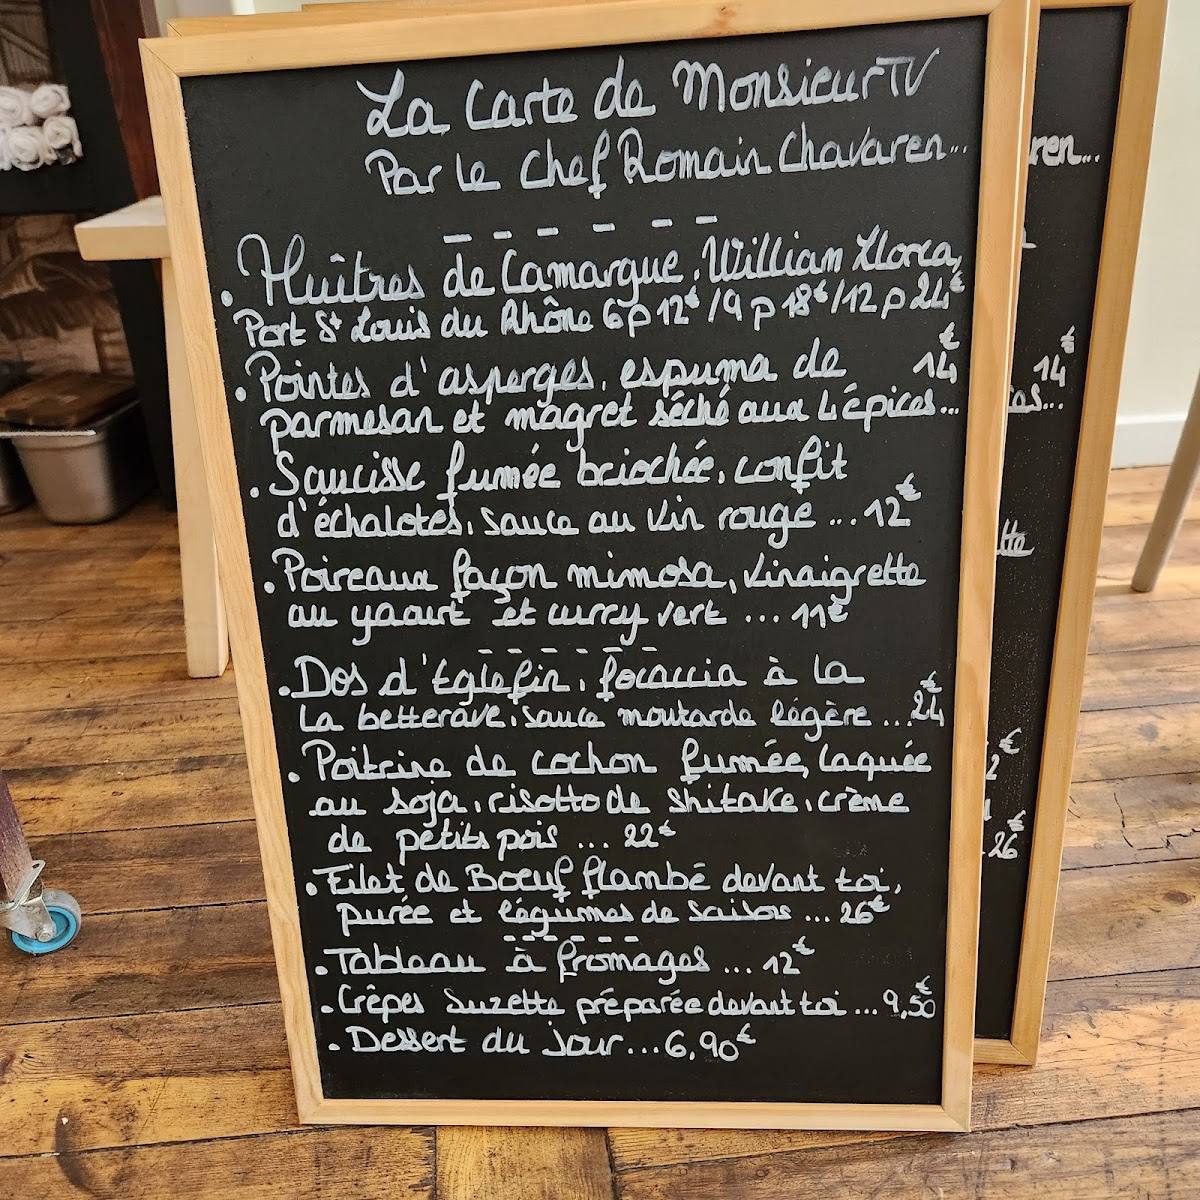 La Carte de Monsieur TV
Par le Chef Romain Chavaren...
• Huîtres de Camargue, William Llorca,
Port St Louis du Rhône 6p 12€ / 9 p 18€ / 12 p 24€
• Pointes d'asperges, espuma de 14€
parmesan et magret séché aux 4 épices...
• Saucisse fumée briochée, confit
d'échalotes, sauce au vin rouge ... 12€
• Poireaux façon mimosa, vinaigrette
au yaourt et curry vert ... 11€
• Dos d'Eglefin, focaccia à la
la betterave, sauce moutarde légère ... 24€
• Poitrine de cochon fumée, laquée
au soja, risotto de shitake, crème
de petits pois ... 22€
• Filet de Boeuf flambé devant toi,
purée et légumes de saison ... 26€
• Tableau à fromages ... 12€
• Crêpes Suzette préparée devant toi ... 9,50€
• Dessert du jour ... 6,90€
ren...
14€
tte
2€
26€